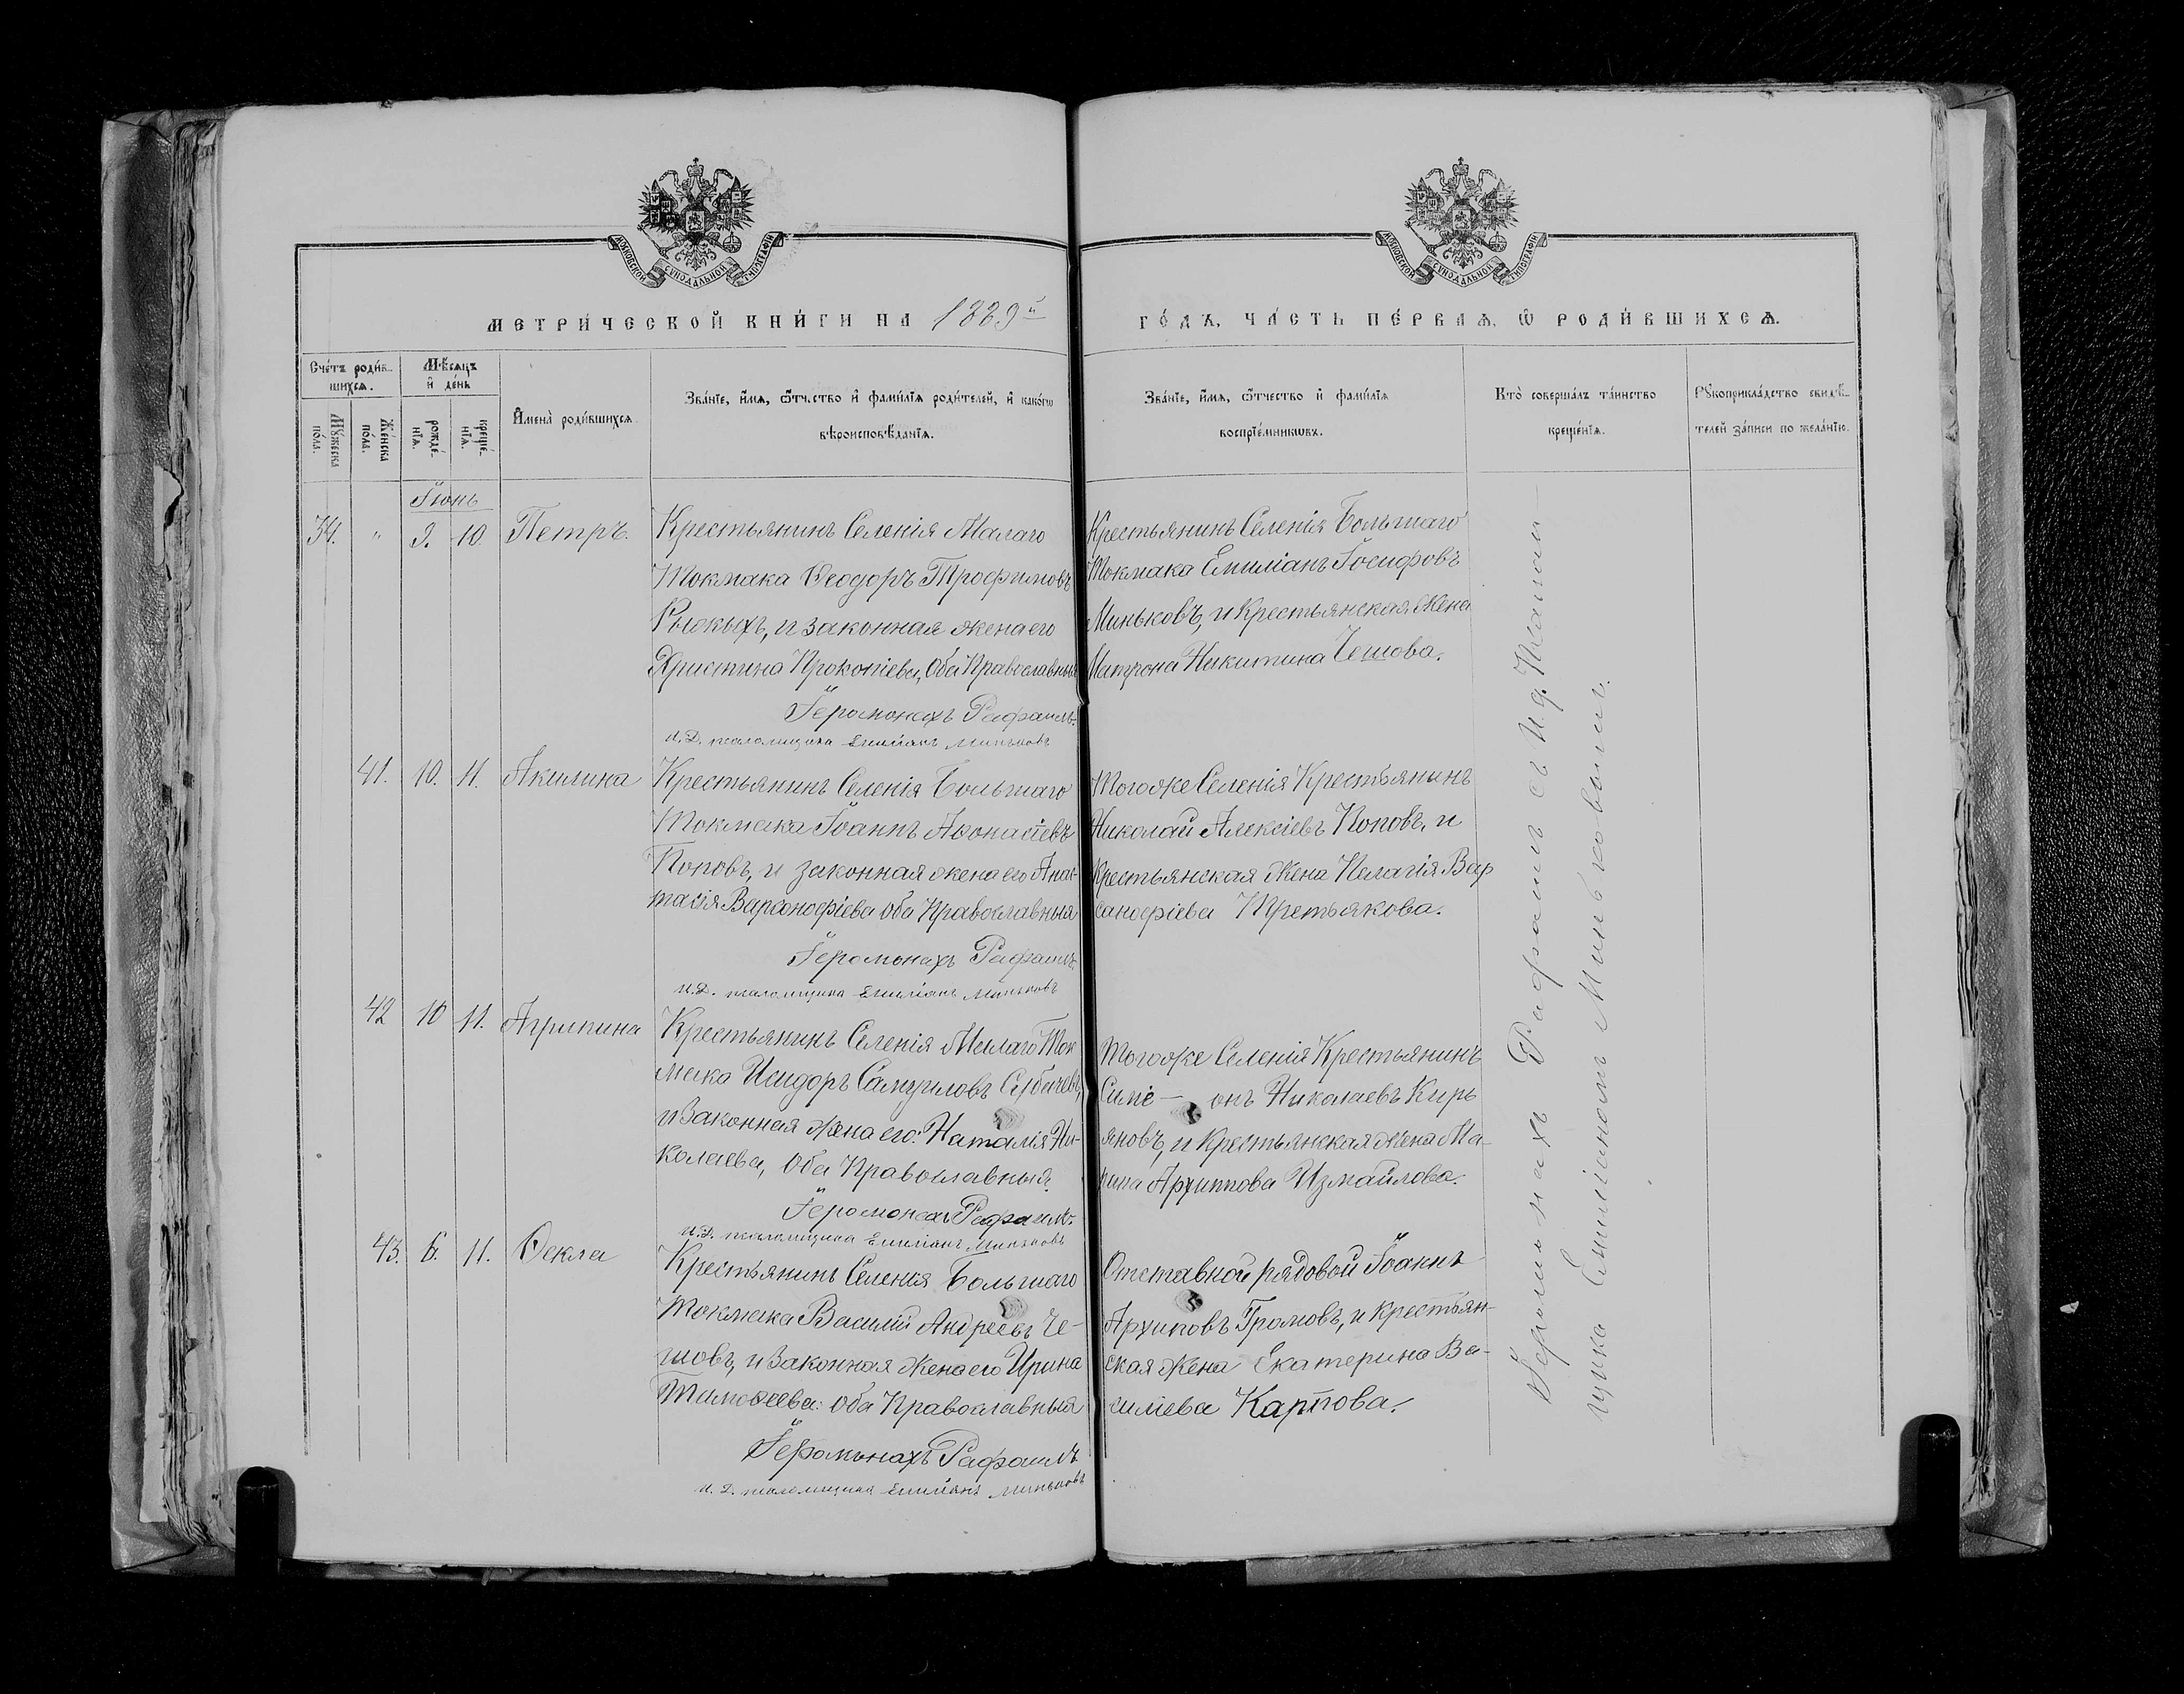 МОСКОВСКОЙ СѴНОДАЛЬНОЙ ТИПОГРАФІИ
МОСКОВСКОЙ СѴНОДАЛЬНОЙ ТИПОГРАФІИ
МЕТРИ́ЧЕСКОЙ КНИ́ГИ НА 1889й
ГО́ДЪ, ЧА́СТЬ ПЕ́РВАѦ, Ѡ҆ РОДИ́ВШИХСѦ.
Сче́тъ роди́в-
шихсѧ.
Мѣ́сѧцъ
и҆ де́нь
Мꙋ́жеска
по́ла.
Же́нска
по́ла.
рожде́-
нїѧ.
креще́-
нїѧ.
И҆мена̀ роди́вшихсѧ
Зва́нїе, и҆́мѧ, ѻ҆́тчество и҆ фамилїѧ роди́телей, и҆ како́гѡ
вѣроисповѣ́данїѧ.
Зва́нїе, и҆́мѧ, ѻ҆́тчество и҆ фами́лїѧ
воспрїе́мникѡвъ.
Кто̀ соверша́лъ та́инство
креще́нїѧ.
Рꙋкоприкла́дство свидѣ́-
телей за́писи по жела́нїю.
Іюнь
34. " 9. 10. Петръ.
Крестьянинъ Селенія Малаго
Токмака Ѳеодоръ Трофимовъ
Рыскыхъ, и законная жена его
Христина Прокопіева, Оба Православныя
Іеромонахъ Рафаилъ.
И.Д. псаломщика Емиліанъ Миньковъ
Крестьянинъ Селенія Большаго
Токмака Емиліанъ Іосифовъ
Миньковъ, и Крестьянская Жена
Матрона Никитина Чешова.
41. 10. 11. Акилина
Крестьянинъ Селенія Большаго
Токмака Іоаннъ Аѳонасіевъ
Поповъ, и законная жена его Анас-
тасія Варсонофіева оба Православныя
Іеромонахъ Рафаилъ.
И.Д. псаломщика Емиліанъ Миньковъ
Тогоже Селенія Крестьянинъ
Николай Алексіевъ Поповъ, и
Крестьянская Жена Пелагія Вар
санофіева Третьякова.
42 10 11. Агрипина
Крестьянинъ Селенія Малаго Ток
мака Исидоръ Самуиловъ
и Законная Жена его: Наталія Ни-
колаева, Оба Православныя.
Іеромонахъ Рафаилъ.
И.Д. псаломщика Емиліанъ Миньковъ
Тогоже Селенія Крестьянинъ
Симе — онъ Николаевъ Кирь
яновъ, и Крестьянская Жена Ма-
рина Архиппова Измайлова.
43. 6. 11. Ѳекла
Крестьянинъ Селенія Большаго
Токмака Василій Андреевъ Че-
шовъ, и Законная Жена его Ирина
Тимоѳеева: оба Православныя
Іеромонахъ Рафаилъ
И.Д. псаломщика Емиліанъ Миньковъ
Отставной рядовой Іоаннъ
Архиповъ Громовъ, и крестьян-
ская Жена Екатерина Ва-
силіева Карпова.
Іеромонахъ Рафаилъ съ И.д. Псалом-
щика Емиліаномъ Миньковымъ.